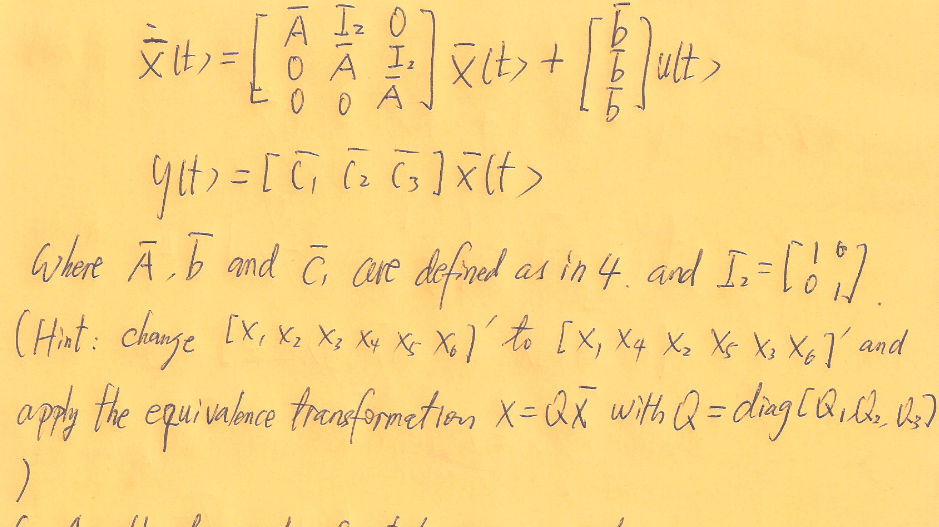 ẋ̄(t) = [ Ā I₂ 0
0 Ā I₂
0 0 Ā ] x̄(t) + [ b̄
b̄
b̄ ] u(t)
y(t) = [ C̄₁ C̄₂ C̄₃ ] x̄(t)
Where Ā, b̄ and C̄, are defined as in 4. and I₂ = [ 1 0
0 1 ].
(Hint: change [X₁ X₂ X₃ X₄ X₅ X₆]' to [X₁ X₄ X₂ X₅ X₃ X₆]' and
apply the equivalence transformation X = QX̄ with Q = diag[Q₁, Q₂, Q₃]
)